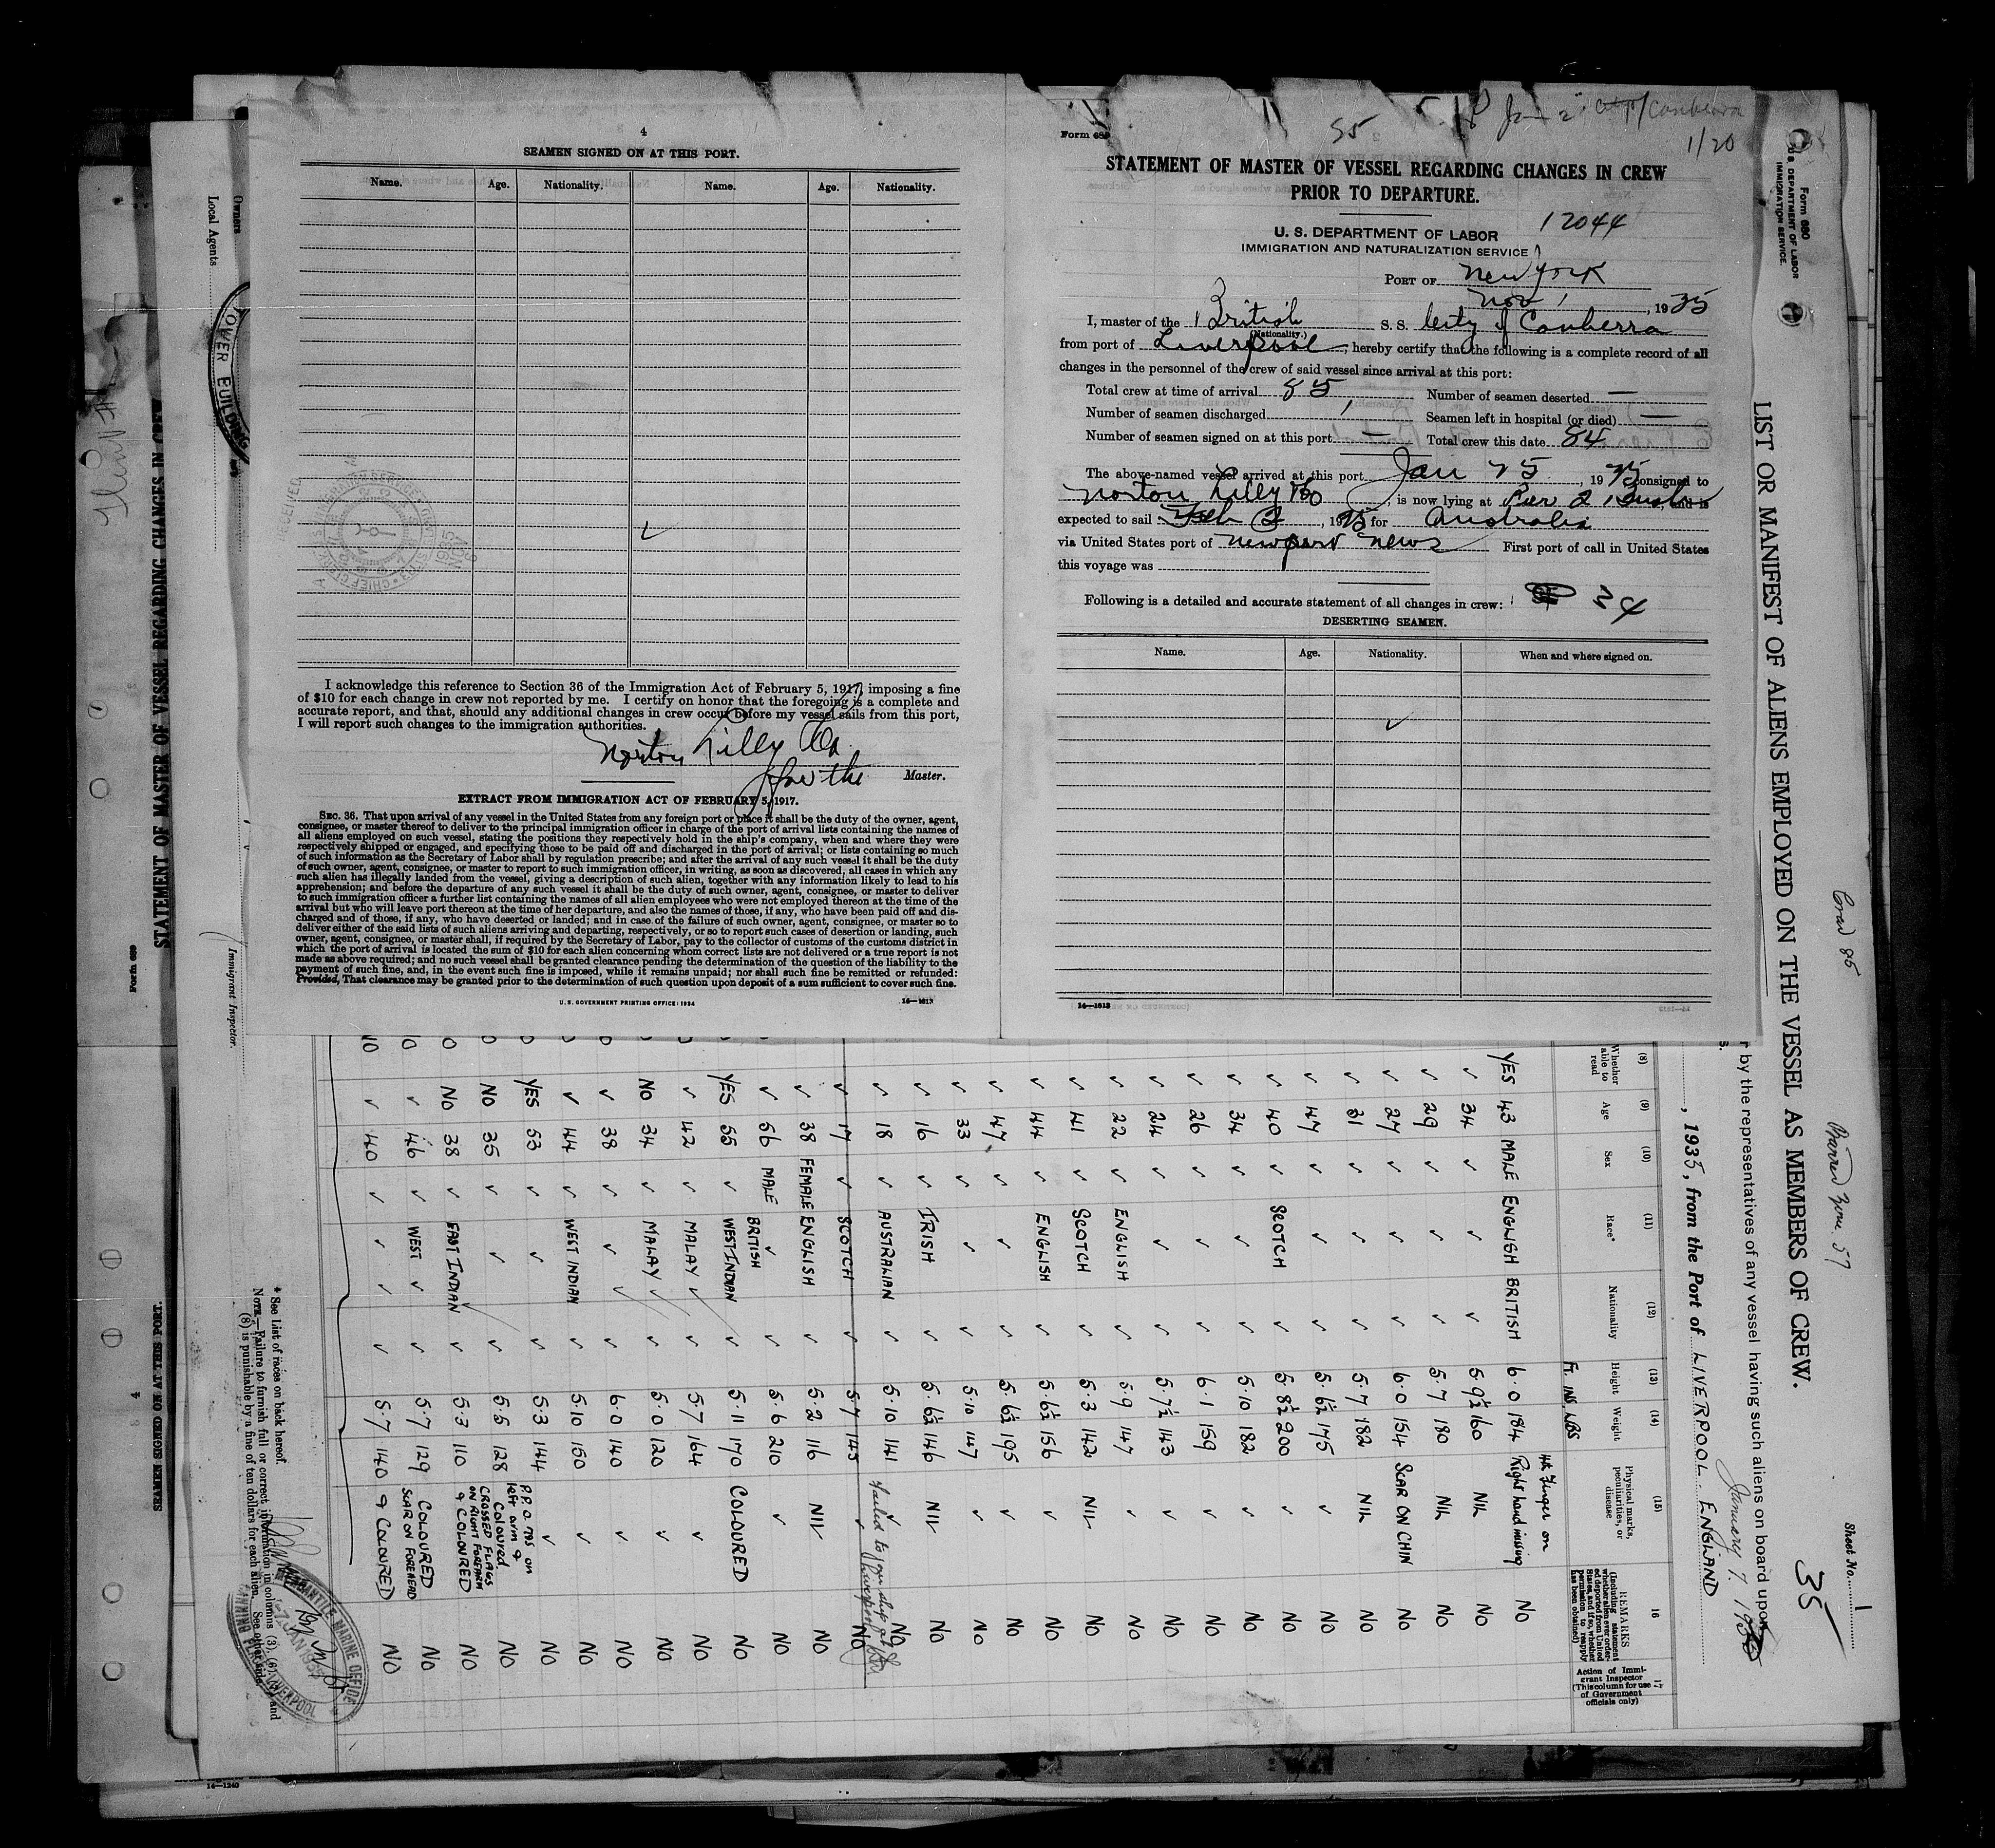 4
SEAMEN SIGNED ON AT THIS PORT.
Name. Age. Nationality. Name. Age. Nationality.
I acknowledge this reference to Section 36 of the Immigration Act of February 5, 1917, imposing a fine
of $10 for each change in crew not reported by me. I certify on honor that the foregoing is a complete and
accurate report, and that, should any additional changes in crew occur before my vessel sails from this port,
I will report such changes to the immigration authorities.
Norton Lilly Co.
Master.
EXTRACT FROM IMMIGRATION ACT OF FEBRUARY 5, 1917.
SEC. 36. That upon arrival of any vessel in the United States from any foreign port or place it shall be the duty of the owner, agent,
consignee, or master thereof to deliver to the principal immigration officer in charge of the port of arrival lists containing the names of
all aliens employed on such vessel, stating the positions they respectively hold in the ship's company, when and where they were
respectively shipped or engaged, and specifying those to be paid off and discharged in the port of arrival; or lists containing so much
of such information as the Secretary of Labor shall by regulation prescribe; and after the arrival of any such vessel it shall be the duty
of such owner, agent, consignee, or master to report to such immigration officer, in writing, as soon as discovered, all cases in which any
such alien has illegally landed from the vessel, giving a description of such alien, together with any information likely to lead to his
apprehension; and before the departure of any such vessel it shall be the duty of such owner, agent, consignee, or master to deliver
to such immigration officer a further list containing the names of all alien employees who were not employed thereon at the time of the
arrival but who will leave port thereon at the time of her departure, and also the names of those, if any, who have been paid off and dis-
charged and of those, if any, who have deserted or landed; and in case of the failure of such owner, agent, consignee, or master so to
deliver either of the said lists of such aliens arriving and departing, respectively, or so to report such cases of desertion or landing, such
owner, agent, consignee, or master shall, if required by the Secretary of Labor, pay to the collector of customs of the customs district in
which the port of arrival is located the sum of $10 for each alien concerning whom correct lists are not delivered or a true report is not
made as above required; and no such vessel shall be granted clearance pending the determination of the question of the liability to the
payment of such fine, and, in the event such fine is imposed, while it remains unpaid; nor shall such fine be remitted or refunded:
Provided, That clearance may be granted prior to the determination of such question upon deposit of a sum sufficient to cover such fine.
U. S. GOVERNMENT PRINTING OFFICE: 1934 14—1613
Form 689
1/20
STATEMENT OF MASTER OF VESSEL REGARDING CHANGES IN CREW
PRIOR TO DEPARTURE.
12044
U. S. DEPARTMENT OF LABOR
IMMIGRATION AND NATURALIZATION SERVICE
PORT OF New York
Nov 1, 1935
I, master of the British S. S. City of Canberra
(Nationality.)
from port of Liverpool, hereby certify that the following is a complete record of all
changes in the personnel of the crew of said vessel since arrival at this port:
Total crew at time of arrival 85 Number of seamen deserted —
Number of seamen discharged 1 Seamen left in hospital (or died) —
Number of seamen signed on at this port — Total crew this date 84
The above-named vessel arrived at this port Jan 25, 1935 consigned to
Norton Lilly Co, is now lying at Pier 2 Bush, and is
expected to sail Feb 2, 1935 for Australia
via United States port of Newport News First port of call in United States
this voyage was
Following is a detailed and accurate statement of all changes in crew: 34
DESERTING SEAMEN.
Name. Age. Nationality. When and where signed on.
14—1613
Form 680
U. S. DEPARTMENT OF LABOR
IMMIGRATION SERVICE.
LIST OR MANIFEST OF ALIENS EMPLOYED ON THE VESSEL AS MEMBERS OF CREW.
Sheet No. 1
35
Crew 85
r by the representatives of any vessel having such aliens on board upon
January 7. 1935
, 1935, from the Port of LIVERPOOL. ENGLAND
(8) Whether able to read (9) Age (10) Sex (11) Race* (12) Nationality (13) Height (14) Weight (15) Physical marks, peculiarities, or disease 16 REMARKS (Including statement whether alien ever ordered deported from United States, and if so, whether permission to reapply has been obtained) 17 Action of Immigrant Inspector (This column for use of Government officials only)
Ft. INS. LBS
YES 43 MALE ENGLISH BRITISH 6.0 184 4th Finger on Right hand missing NO
✓ 34 ✓ ✓ ✓ 5.9½ 160 NIL NO
✓ 29 ✓ ✓ ✓ 5.7 180 NIL NO
✓ 27 ✓ ✓ ✓ 6.0 154 SCAR ON CHIN NO
✓ 31 ✓ ✓ ✓ 5.7 182 NIL NO
✓ 47 ✓ ✓ ✓ 5.6½ 175 ✓ NO
✓ 40 ✓ SCOTCH ✓ 5.8½ 200 ✓ NO
✓ 34 ✓ ✓ ✓ 5.10 182 ✓ NO
✓ 26 ✓ ✓ ✓ 6.1 159 ✓ NO
✓ 24 ✓ ✓ ✓ 5.7½ 143 ✓ NO
✓ 22 ✓ ENGLISH ✓ 5.9 147 ✓ NO
✓ 41 ✓ SCOTCH ✓ 5.3 142 NIL NO
✓ 44 ✓ ENGLISH ✓ 5.6½ 156 ✓ NO
✓ 47 ✓ ✓ ✓ 5.6½ 195 ✓ NO
✓ 33 ✓ ✓ ✓ 5.10 147 ✓ NO
✓ 16 ✓ IRISH ✓ 5.6½ 146 NIL NO
✓ 18 ✓ AUSTRALIAN ✓ 5.10 141 ✓ NO
✓ 17 ✓ SCOTCH ✓ 5.7 145 ✓ Failed to join ship at Liverpool NO
✓ 38 FEMALE ENGLISH ✓ 5.2 116 NIL NO
✓ 56 MALE ✓ BRITISH ✓ 5.6 210 ✓ NO
YES 55 ✓ WEST INDIAN ✓ 5.11 170 COLOURED NO
✓ 42 ✓ MALAY ✓ 5.7 164 ✓ NO
NO 34 ✓ MALAY ✓ 5.0 120 ✓ NO
✓ 38 ✓ ✓ ✓ 6.0 140 ✓ NO
✓ 44 ✓ WEST INDIAN ✓ 5.10 150 ✓ NO
YES 53 ✓ ✓ ✓ 5.3 144 ✓ NO
NO 35 ✓ ✓ ✓ 5.5 128 P.P.O. 1795 on left arm & Coloured NO
NO 38 ✓ EAST INDIAN ✓ 5.3 110 CROSSED FLAGS ON RIGHT FOREARM & COLOURED NO
✓ 46 ✓ WEST ✓ ✓ 5.7 129 COLOURED SCAR ON FOREHEAD NO
✓ 40 ✓ ✓ ✓ 5.7 140 & COLOURED NO
* See List of races on back hereof.
NOTE.—Failure to furnish full or correct information in columns (3), (6), and
(8) is punishable by a fine of ten dollars for each alien. See other side.
MERCANTILE MARINE OFFICE
LIVERPOOL
Owners
Local Agents
TOWER BUILDING
Immigrant Inspector.
14—1240
STATEMENT OF MASTER OF VESSEL REGARDING CHANGES IN CREW
Form 689
4
SEAMEN SIGNED ON AT THIS PORT.